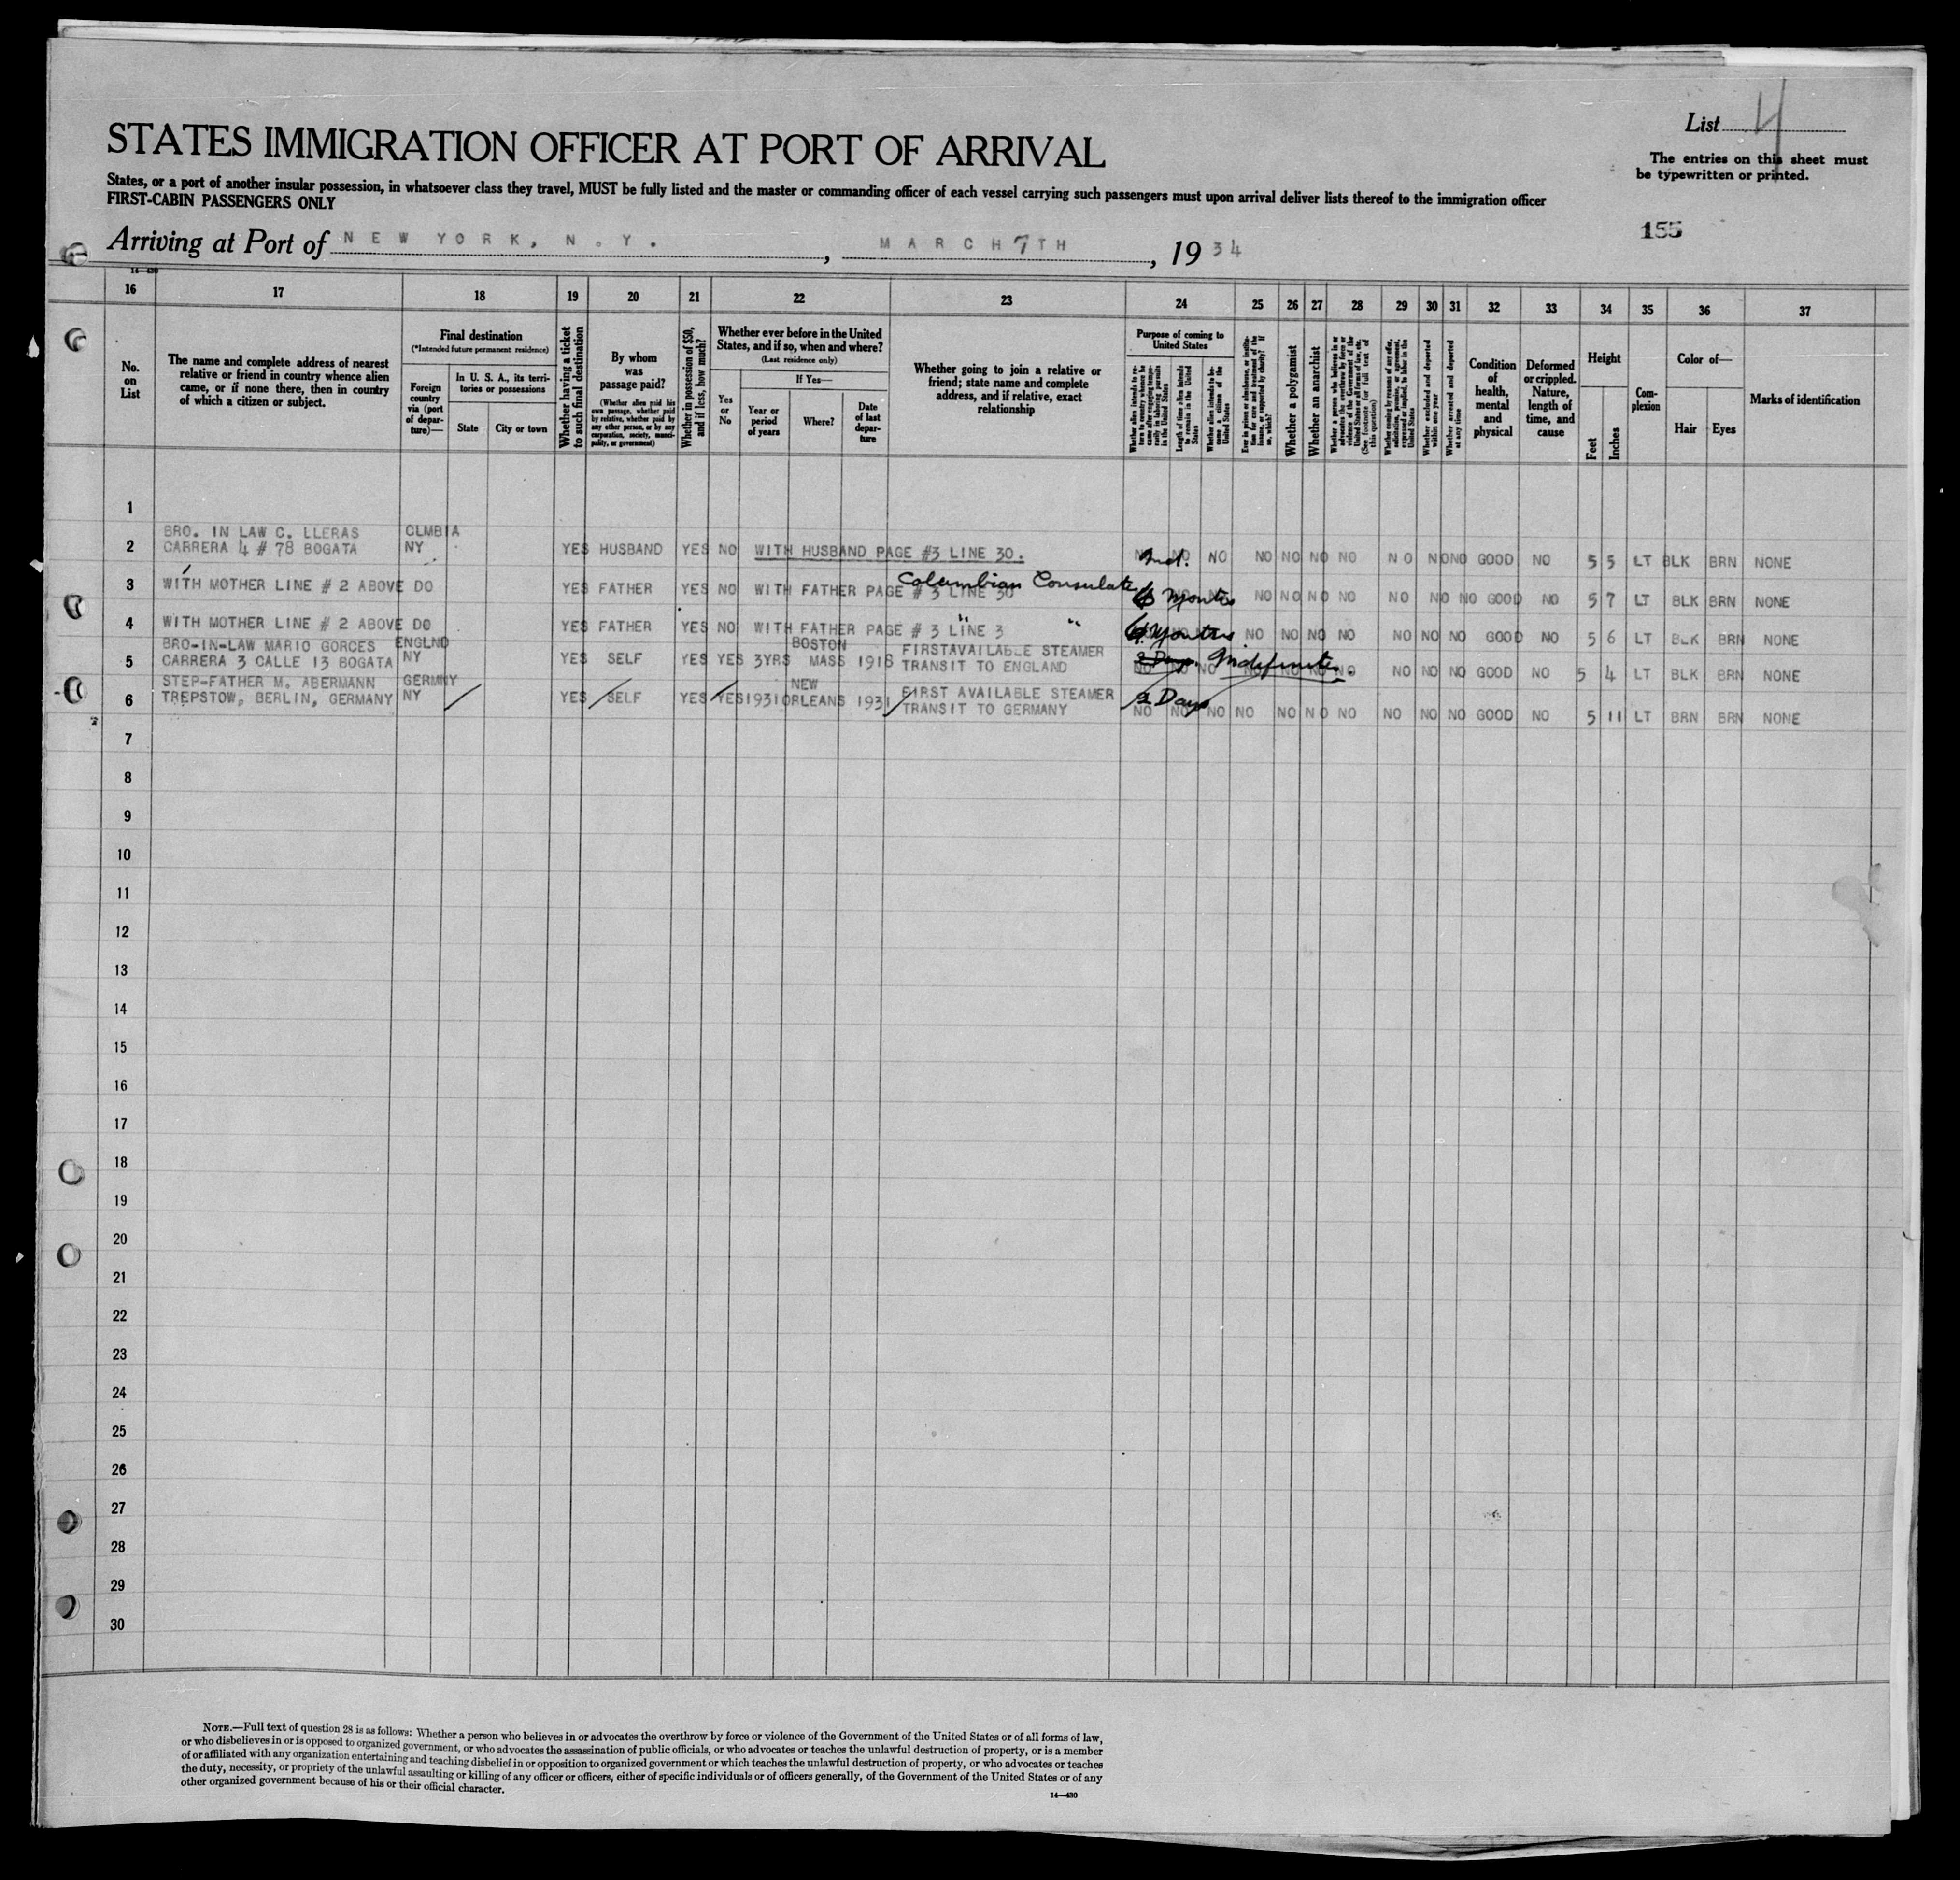 List 4
STATES IMMIGRATION OFFICER AT PORT OF ARRIVAL
The entries on this sheet must
be typewritten or printed.
States, or a port of another insular possession, in whatsoever class they travel, MUST be fully listed and the master or commanding officer of each vessel carrying such passengers must upon arrival deliver lists thereof to the immigration officer
FIRST-CABIN PASSENGERS ONLY
155
Arriving at Port of NEW YORK, N.Y. , MARCH 7TH , 19 34
14—430
16 17 18 19 20 21 22 23 24 25 26 27 28 29 30 31 32 33 34 35 36 37
No. on List
The name and complete address of nearest relative or friend in country whence alien came, or if none there, then in country of which a citizen or subject.
Final destination
(*Intended future permanent residence)
Foreign country via (port of departure)—
In U. S. A., its territories or possessions
State
City or town
Whether having a ticket to such final destination
By whom was passage paid?
(Whether alien paid his own passage, whether paid by relative, whether paid by any other person, or by any corporation, society, municipality, or government)
Whether in possession of $50, and if less, how much?
Whether ever before in the United States, and if so, when and where?
(Last residence only)
Yes or No
If Yes—
Year or period of years
Where?
Date of last departure
Whether going to join a relative or friend; state name and complete address, and if relative, exact relationship
Purpose of coming to United States
Length of time alien intends to remain in the United States
Whether alien intends to become a citizen of the United States
Whether a polygamist
Whether an anarchist
(See footnote for full text of this question)
Whether excluded and deported within one year
Whether arrested and deported at any time
Condition of health, mental and physical
Deformed or crippled. Nature, length of time, and cause
Height
Feet
Inches
Complexion
Color of—
Hair
Eyes
Marks of identification
1
BRO. IN LAW C. LLERAS CLMBIA
2 CARRERA 4 # 78 BOGATA NY YES HUSBAND YES NO WITH HUSBAND PAGE #3 LINE 30. Ind. NO NO NO NO NO NO NO NO NO GOOD NO 5 5 LT BLK BRN NONE
Columbian Consulate
3 WITH MOTHER LINE # 2 ABOVE DO YES FATHER YES NO WITH FATHER PAGE # 3 LINE 30 6 Months NO NO NO NO NO NO NO GOOD NO 5 7 LT BLK BRN NONE
4 WITH MOTHER LINE # 2 ABOVE DO YES FATHER YES NO WITH FATHER PAGE # 3 LINE 3 " " 6 Months NO NO NO NO NO NO NO GOOD NO 5 6 LT BLK BRN NONE
BRO-IN-LAW MARIO GORCES ENGLND BOSTON FIRSTAVAILABLE STEAMER
5 CARRERA 3 CALLE 13 BOGATA NY YES SELF YES YES 3YRS MASS 1918 TRANSIT TO ENGLAND 2 Days Indefinite NO NO NO NO NO NO NO NO NO NO GOOD NO 5 4 LT BLK BRN NONE
STEP-FATHER M. ABERMANN GERMNY NEW FIRST AVAILABLE STEAMER
6 TREPSTOW, BERLIN, GERMANY NY YES SELF YES YES 1931 ORLEANS 1931 TRANSIT TO GERMANY 2 Days NO NO NO NO NO NO NO NO NO NO GOOD NO 5 11 LT BRN BRN NONE
7
8
9
10
11
12
13
14
15
16
17
18
19
20
21
22
23
24
25
26
27
28
29
30
NOTE.—Full text of question 28 is as follows: Whether a person who believes in or advocates the overthrow by force or violence of the Government of the United States or of all forms of law,
or who disbelieves in or is opposed to organized government, or who advocates the assassination of public officials, or who advocates or teaches the unlawful destruction of property, or is a member
of or affiliated with any organization entertaining and teaching disbelief in or opposition to organized government or which teaches the unlawful destruction of property, or who advocates or teaches
the duty, necessity, or propriety of the unlawful assaulting or killing of any officer or officers, either of specific individuals or of officers generally, of the Government of the United States or of any
other organized government because of his or their official character.
14—430